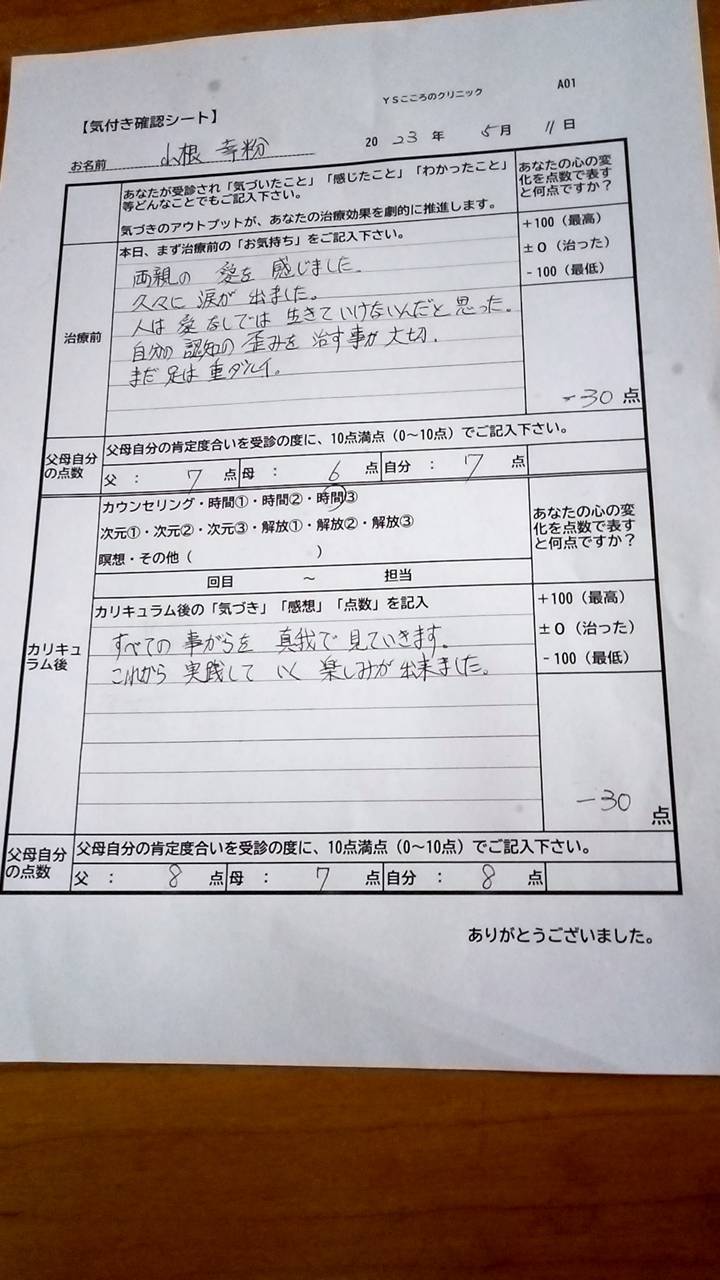 YSこころのクリニック
A01
【気付き確認シート】
お名前 山根 幸粉
20 23 年 5月 11日
あなたが受診され「気づいたこと」「感じたこと」「わかったこと」
等どんなことでもご記入下さい。
気づきのアウトプットが、あなたの治療効果を劇的に推進します。
あなたの心の変
化を点数で表す
と何点ですか？
治療前
本日、まず治療前の「お気持ち」をご記入下さい。
両親の 愛を 感じました.
久々に 涙が 出ました。
人は 愛 なしでは 生きていけないんだと 思った。
自分の 認知の 歪みを 治す事が 大切.
まだ 足は 重ダルイ。
+100（最高）
±0（治った）
-100（最低）
-30 点
父母自分
の点数
父母自分の肯定度合いを受診の度に、10点満点（0～10点）でご記入下さい。
父 ： 7 点 母 ： 6 点 自分 ： 7 点
カリキュ
ラム後
カウンセリング・時間①・時間②・時間③
次元①・次元②・次元③・解放①・解放②・解放③
瞑想・その他（ ）
回目 ～ 担当
あなたの心の変
化を点数で表す
と何点ですか？
カリキュラム後の「気づき」「感想」「点数」を記入
すべての 事がらを 真我で 見ていきます.
これから 実践して いく 楽しみが 出来ました。
+100（最高）
±0（治った）
-100（最低）
-30 点
父母自分
の点数
父母自分の肯定度合いを受診の度に、10点満点（0～10点）でご記入下さい。
父 ： 8 点 母 ： 7 点 自分 ： 8 点
ありがとうございました。